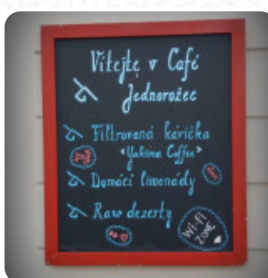 Vítejte v Café
Jednorožec
Filtrovaná kávička
"Yakima Coffee"
Domácí limonády
Raw dezerty
Wi-fi
ZONE